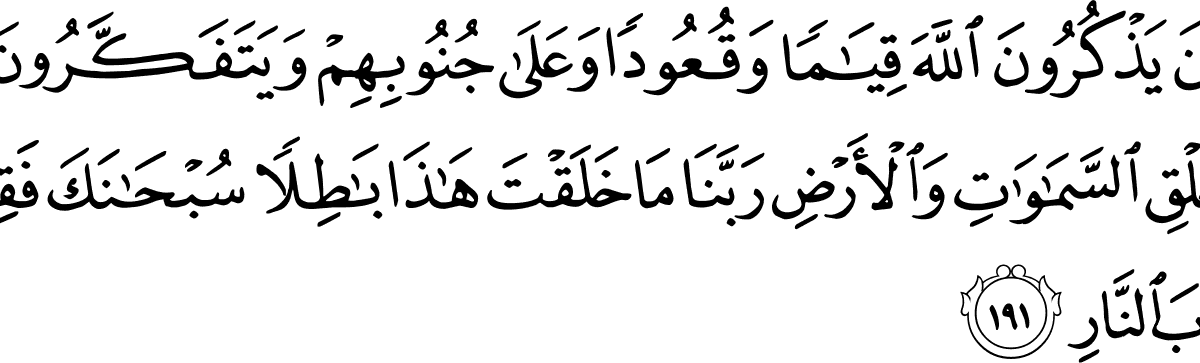 نَ يَذْكُرُونَ ٱللَّهَ قِيَٰمًا وَقُعُودًا وَعَلَىٰ جُنُوبِهِمْ وَيَتَفَكَّرُونَ
لْقِ ٱلسَّمَٰوَٰتِ وَٱلْأَرْضِ رَبَّنَا مَا خَلَقْتَ هَٰذَا بَٰطِلًا سُبْحَٰنَكَ فَقِ
بَ ٱلنَّارِ ١٩١